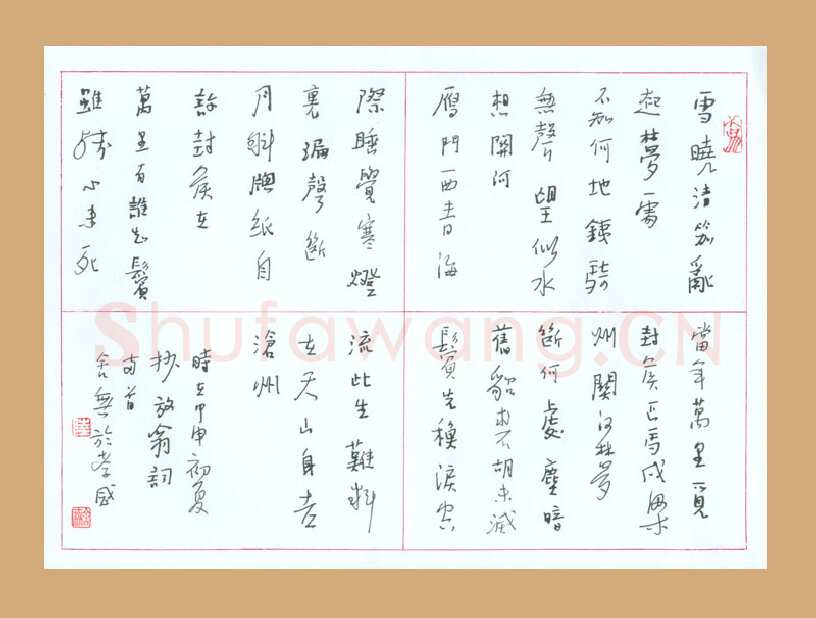 雪曉清笳亂
起夢處
不知何地鐵騎
無聲望似水
想關河
雁門西青海
際睡覺寒燈
裏漏聲斷
月斜窗紙自
許封侯在
萬里有誰知鬢
雖殘心未死
當年萬里覓
封侯匹馬戍梁
州關河夢
斷何處塵暗
舊貂裘胡未滅
鬢先秋淚空
流此生難料
在天山身老
滄州
時在甲申初夏
抄放翁詞
两首
Shufawang.CN